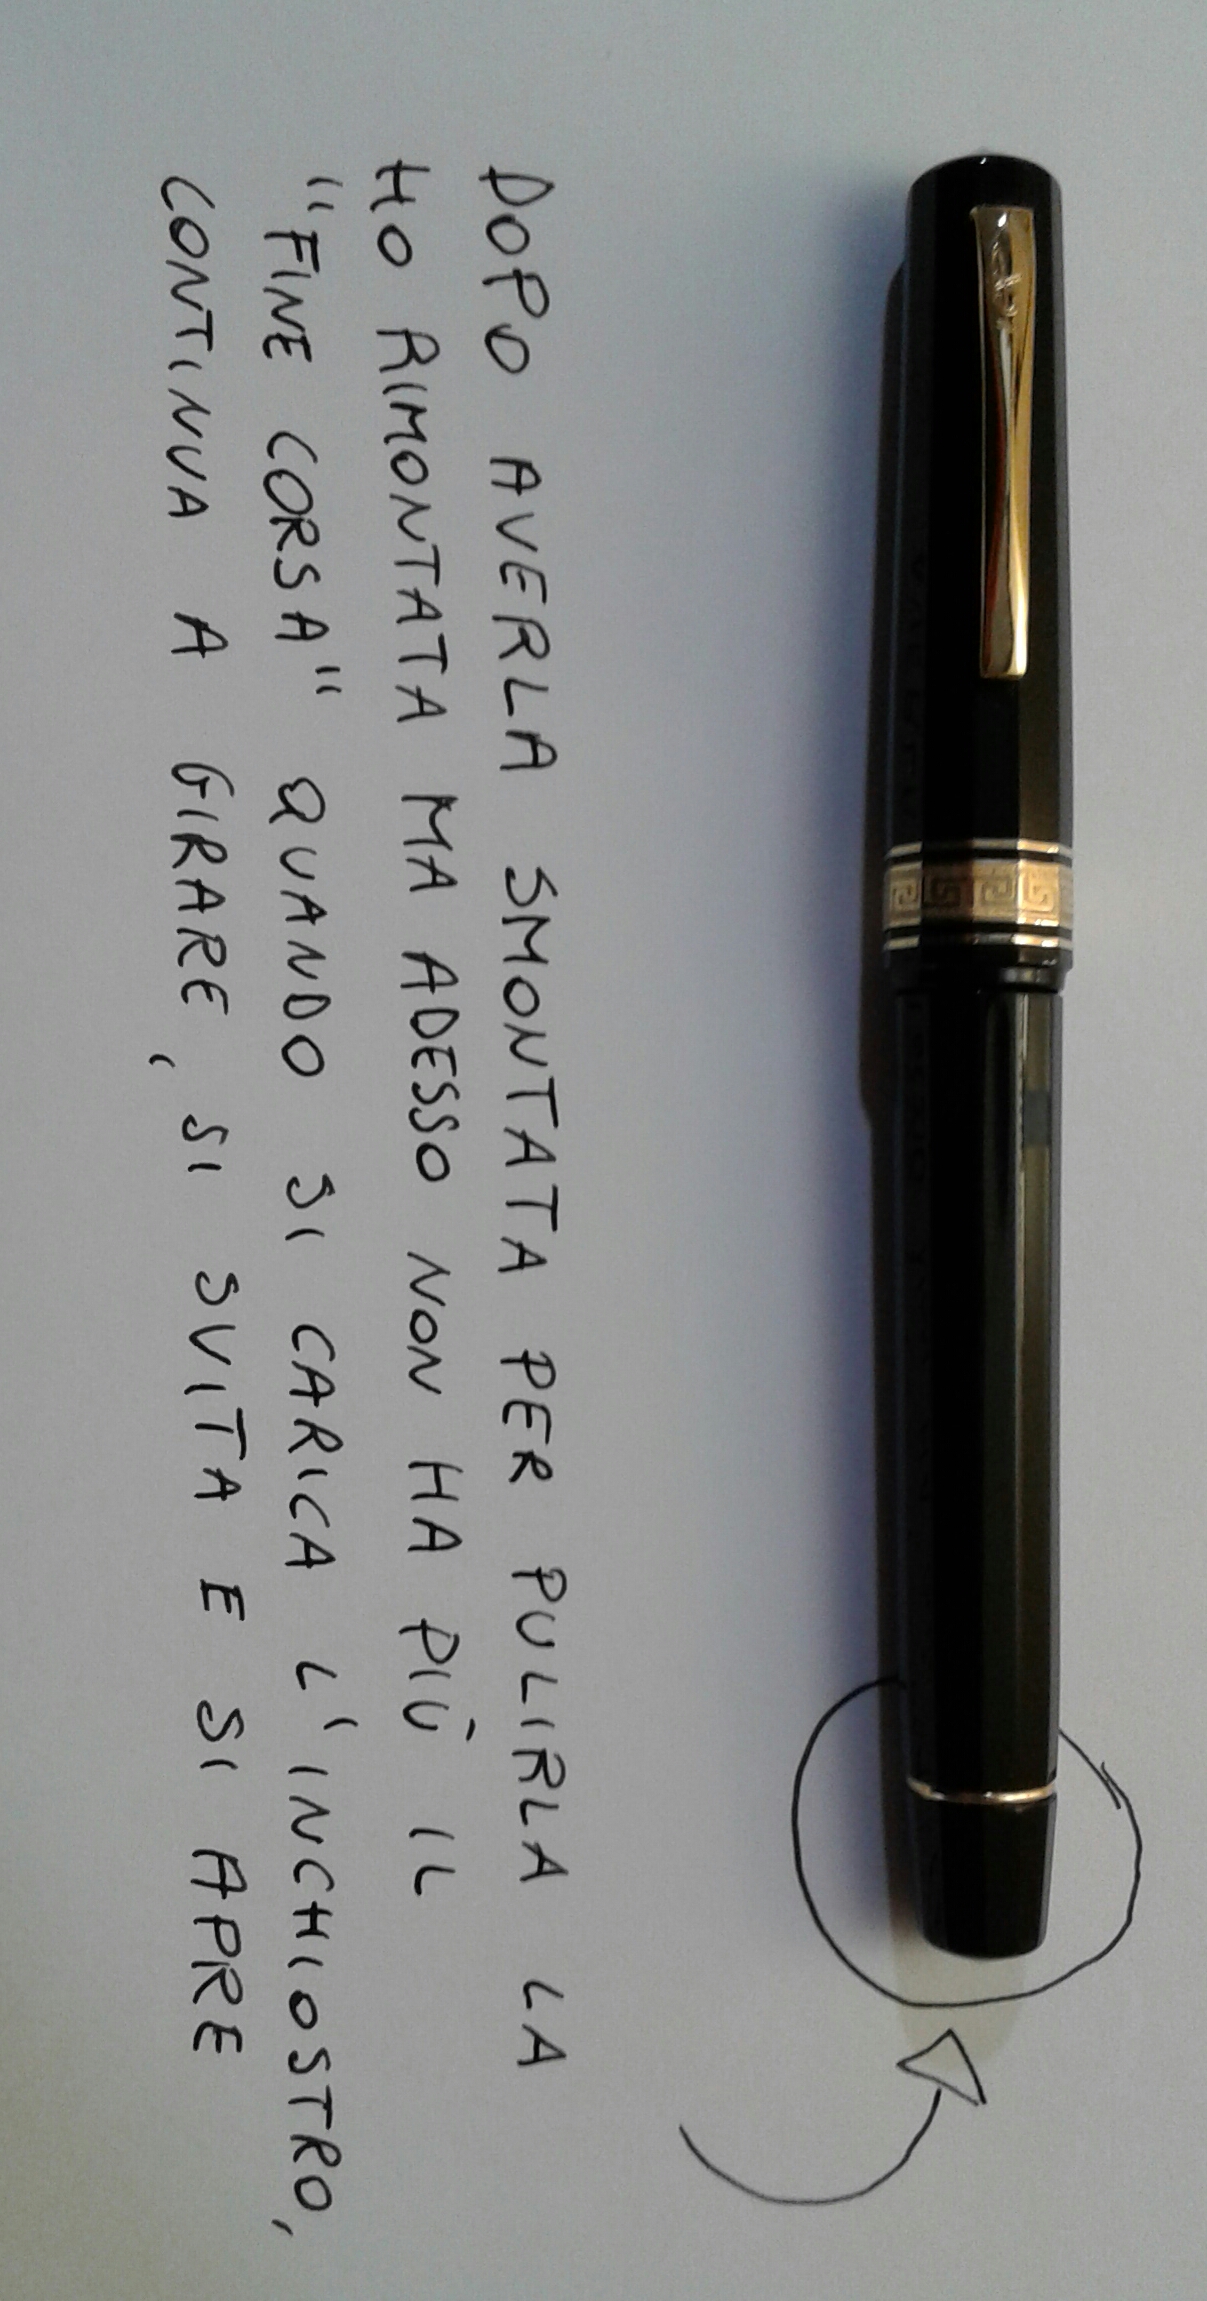 DOPO AVERLA SMONTATA PER PULIRLA LA
HO RIMONTATA MA ADESSO NON HA PIÙ IL
"FINE CORSA" QUANDO SI CARICA L'INCHIOSTRO,
CONTINUA A GIRARE, SI SVITA E SI APRE